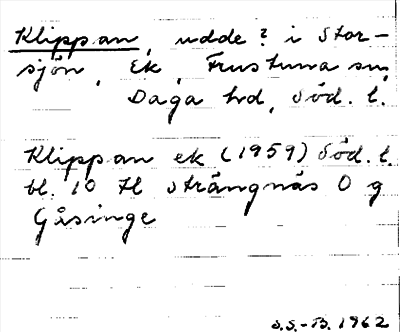 Klippan, udde? i Stor-
sjön, Ek, Frustuna sn,
Daga hd, Söd. l.
Klippan ek (1959) Söd. l.
bl. 10 Hl Strängnäs O g
Gåsinge
S.S.-B. 1962